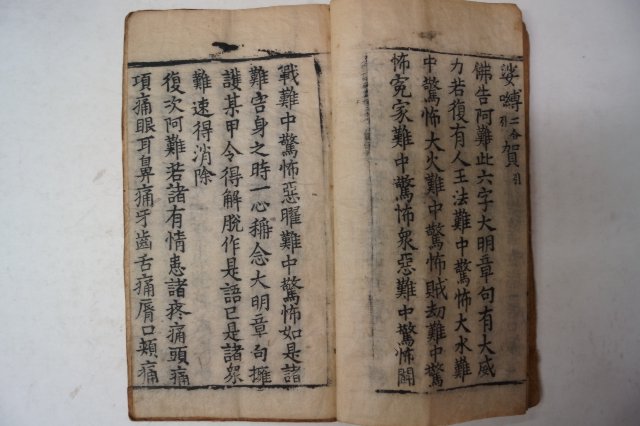 娑嚩二合引賀引
佛告阿難此六字大明章句有大威
力若復有人王法難中驚怖大水難
中驚怖大火難中驚怖賊劫難中驚
怖冤家難中驚怖衆惡難中驚怖鬬
戰難中驚怖惡曜難中驚怖如是諸
難害身之時一心稱念大明章句擁
護某甲令得解脫作是語已是諸衆
難速得消除
復次阿難若諸有情患諸疼痛頭痛
項痛眼耳鼻痛牙齒舌痛脣口頰痛